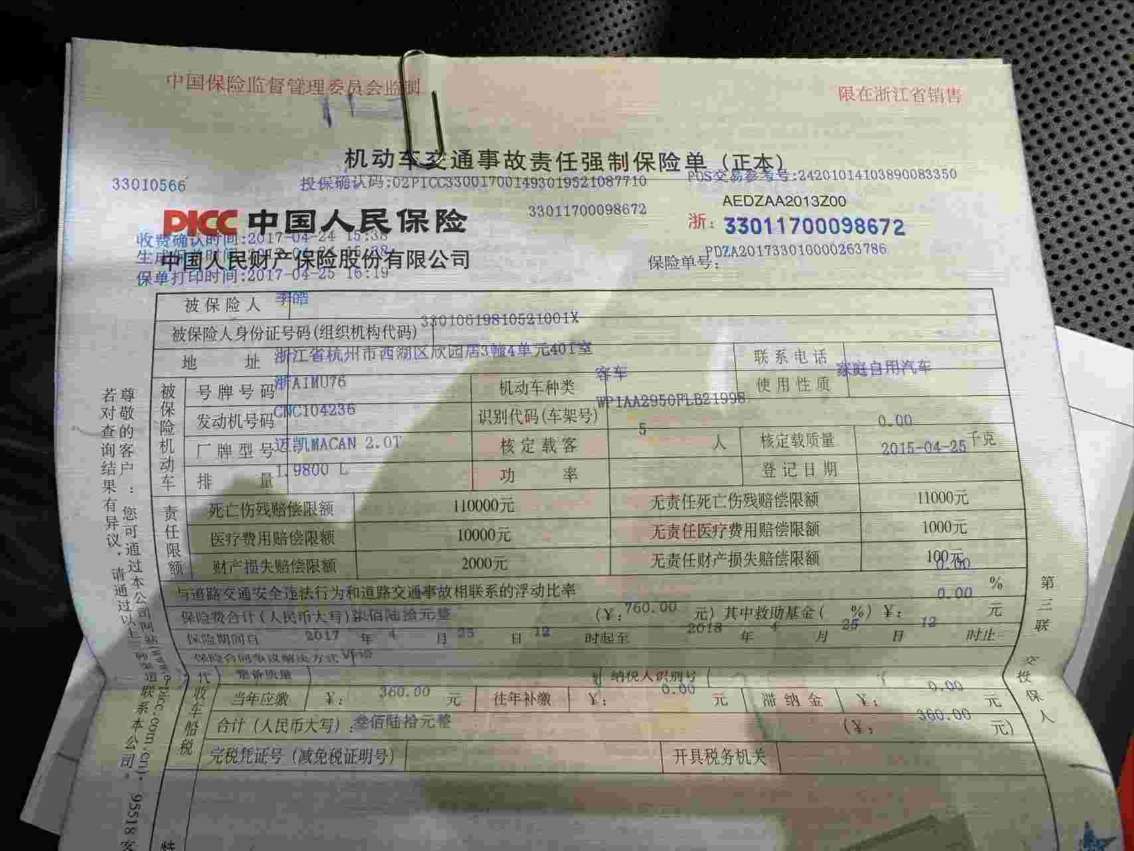 中国保险监督管理委员会监制
限在浙江省销售
机动车交通事故责任强制保险单（正本）
33010566
投保确认码:02PICC330017001493019521087710
POS交易参考号:24201014103890083350
AEDZAA2013Z00
PICC 中国人民保险
33011700098672
浙: 33011700098672
收费确认时间:2017-04-24 15:38
中国人民财产保险股份有限公司
保险单号: PDZA201733016000263786
保单打印时间:2017-04-25 16:19
被保险人 李皓
被保险人身份证号码(组织机构代码) 33010619810521001X
地 址 浙江省杭州市西湖区欣园居3幢4单元401室 联系电话
被保险机动车
号牌号码 浙A1MU76 机动车种类 客车 使用性质 家庭自用汽车
发动机号码 CNC104236 识别代码(车架号) WP1AA2950FLB21998
厂牌型号 迈凯MACAN 2.0T 核定载客 5 人 核定载质量 0.00 千克
排 量 1.9800 L 功 率 登记日期 2015-04-25
责任限额
死亡伤残赔偿限额 110000元 无责任死亡伤残赔偿限额 11000元
医疗费用赔偿限额 10000元 无责任医疗费用赔偿限额 1000元
财产损失赔偿限额 2000元 无责任财产损失赔偿限额 100元
与道路交通安全违法行为和道路交通事故相联系的浮动比率 0.00 %
保险费合计(人民币大写)柒佰陆拾元整 (¥: 760.00 元) 其中救助基金( %) ¥: 0.00 元
保险期间自 2017 年 4 月 25 日 12 时起至 2018 年 4 月 25 日 12 时止
保险合同争议解决方式
代收车船税
整备质量 纳税人识别号
当年应缴 ¥: 360.00 元 往年补缴 ¥: 0.00 元 滞纳金 ¥: 0.00 元
合计(人民币大写): 叁佰陆拾元整 (¥: 360.00 元)
完税凭证号(减免税证明号) 开具税务机关
尊敬的客户：您可通过本公司网站(www.picc.com.cn)、95518客
若对查询结果有异议，请通过以上
联系本公司。
第三联
交投保人
特